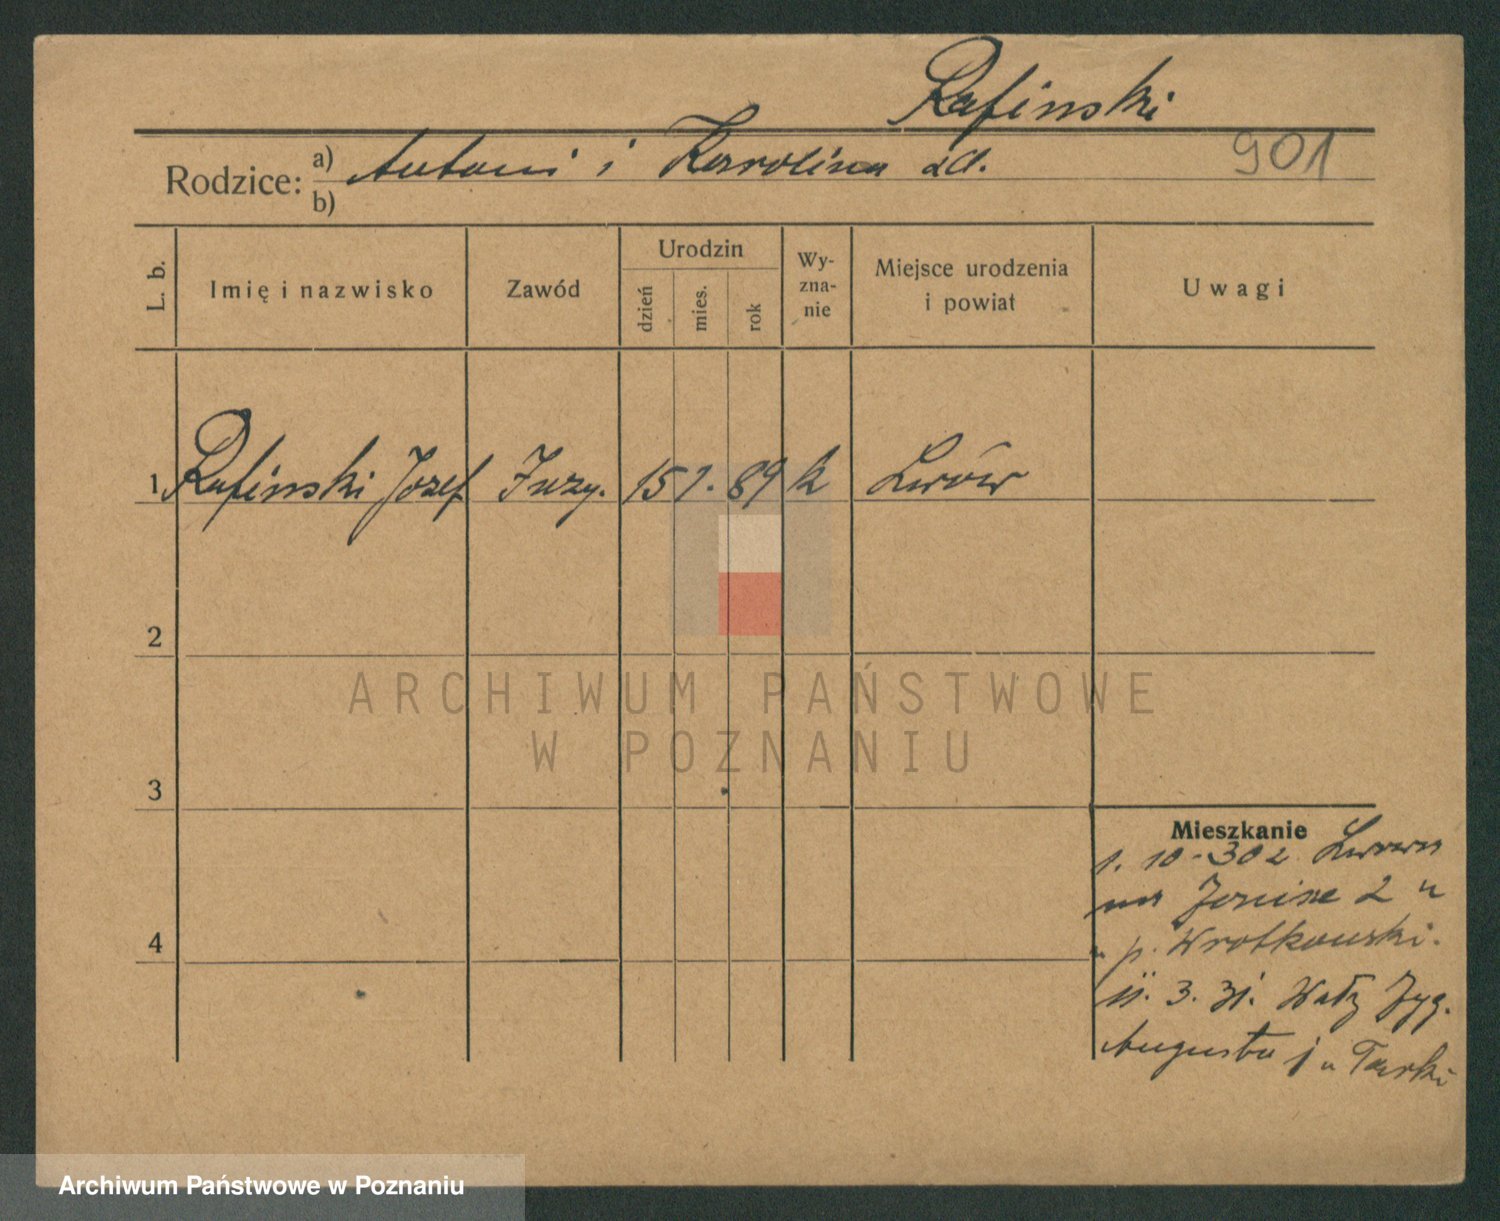 Rafinski
Rodzice: a) Antoni i Karolina 901
b)
L. b. Imię i nazwisko Zawód Urodzin dzień mies. rok Wy-zna-nie Miejsce urodzenia i powiat Uwagi
1 Rafinski Jozef Inży. 15 1. 89 k Lwów
2
3
4
Mieszkanie
1. 10. 302 Lwowa
na 2 u
p. Wrotkowski.
11. 3. 31. Wały Zyg.
Augusta 1 u
ARCHIWUM PAŃSTWOWE
W POZNANIU
Archiwum Państwowe w Poznaniu